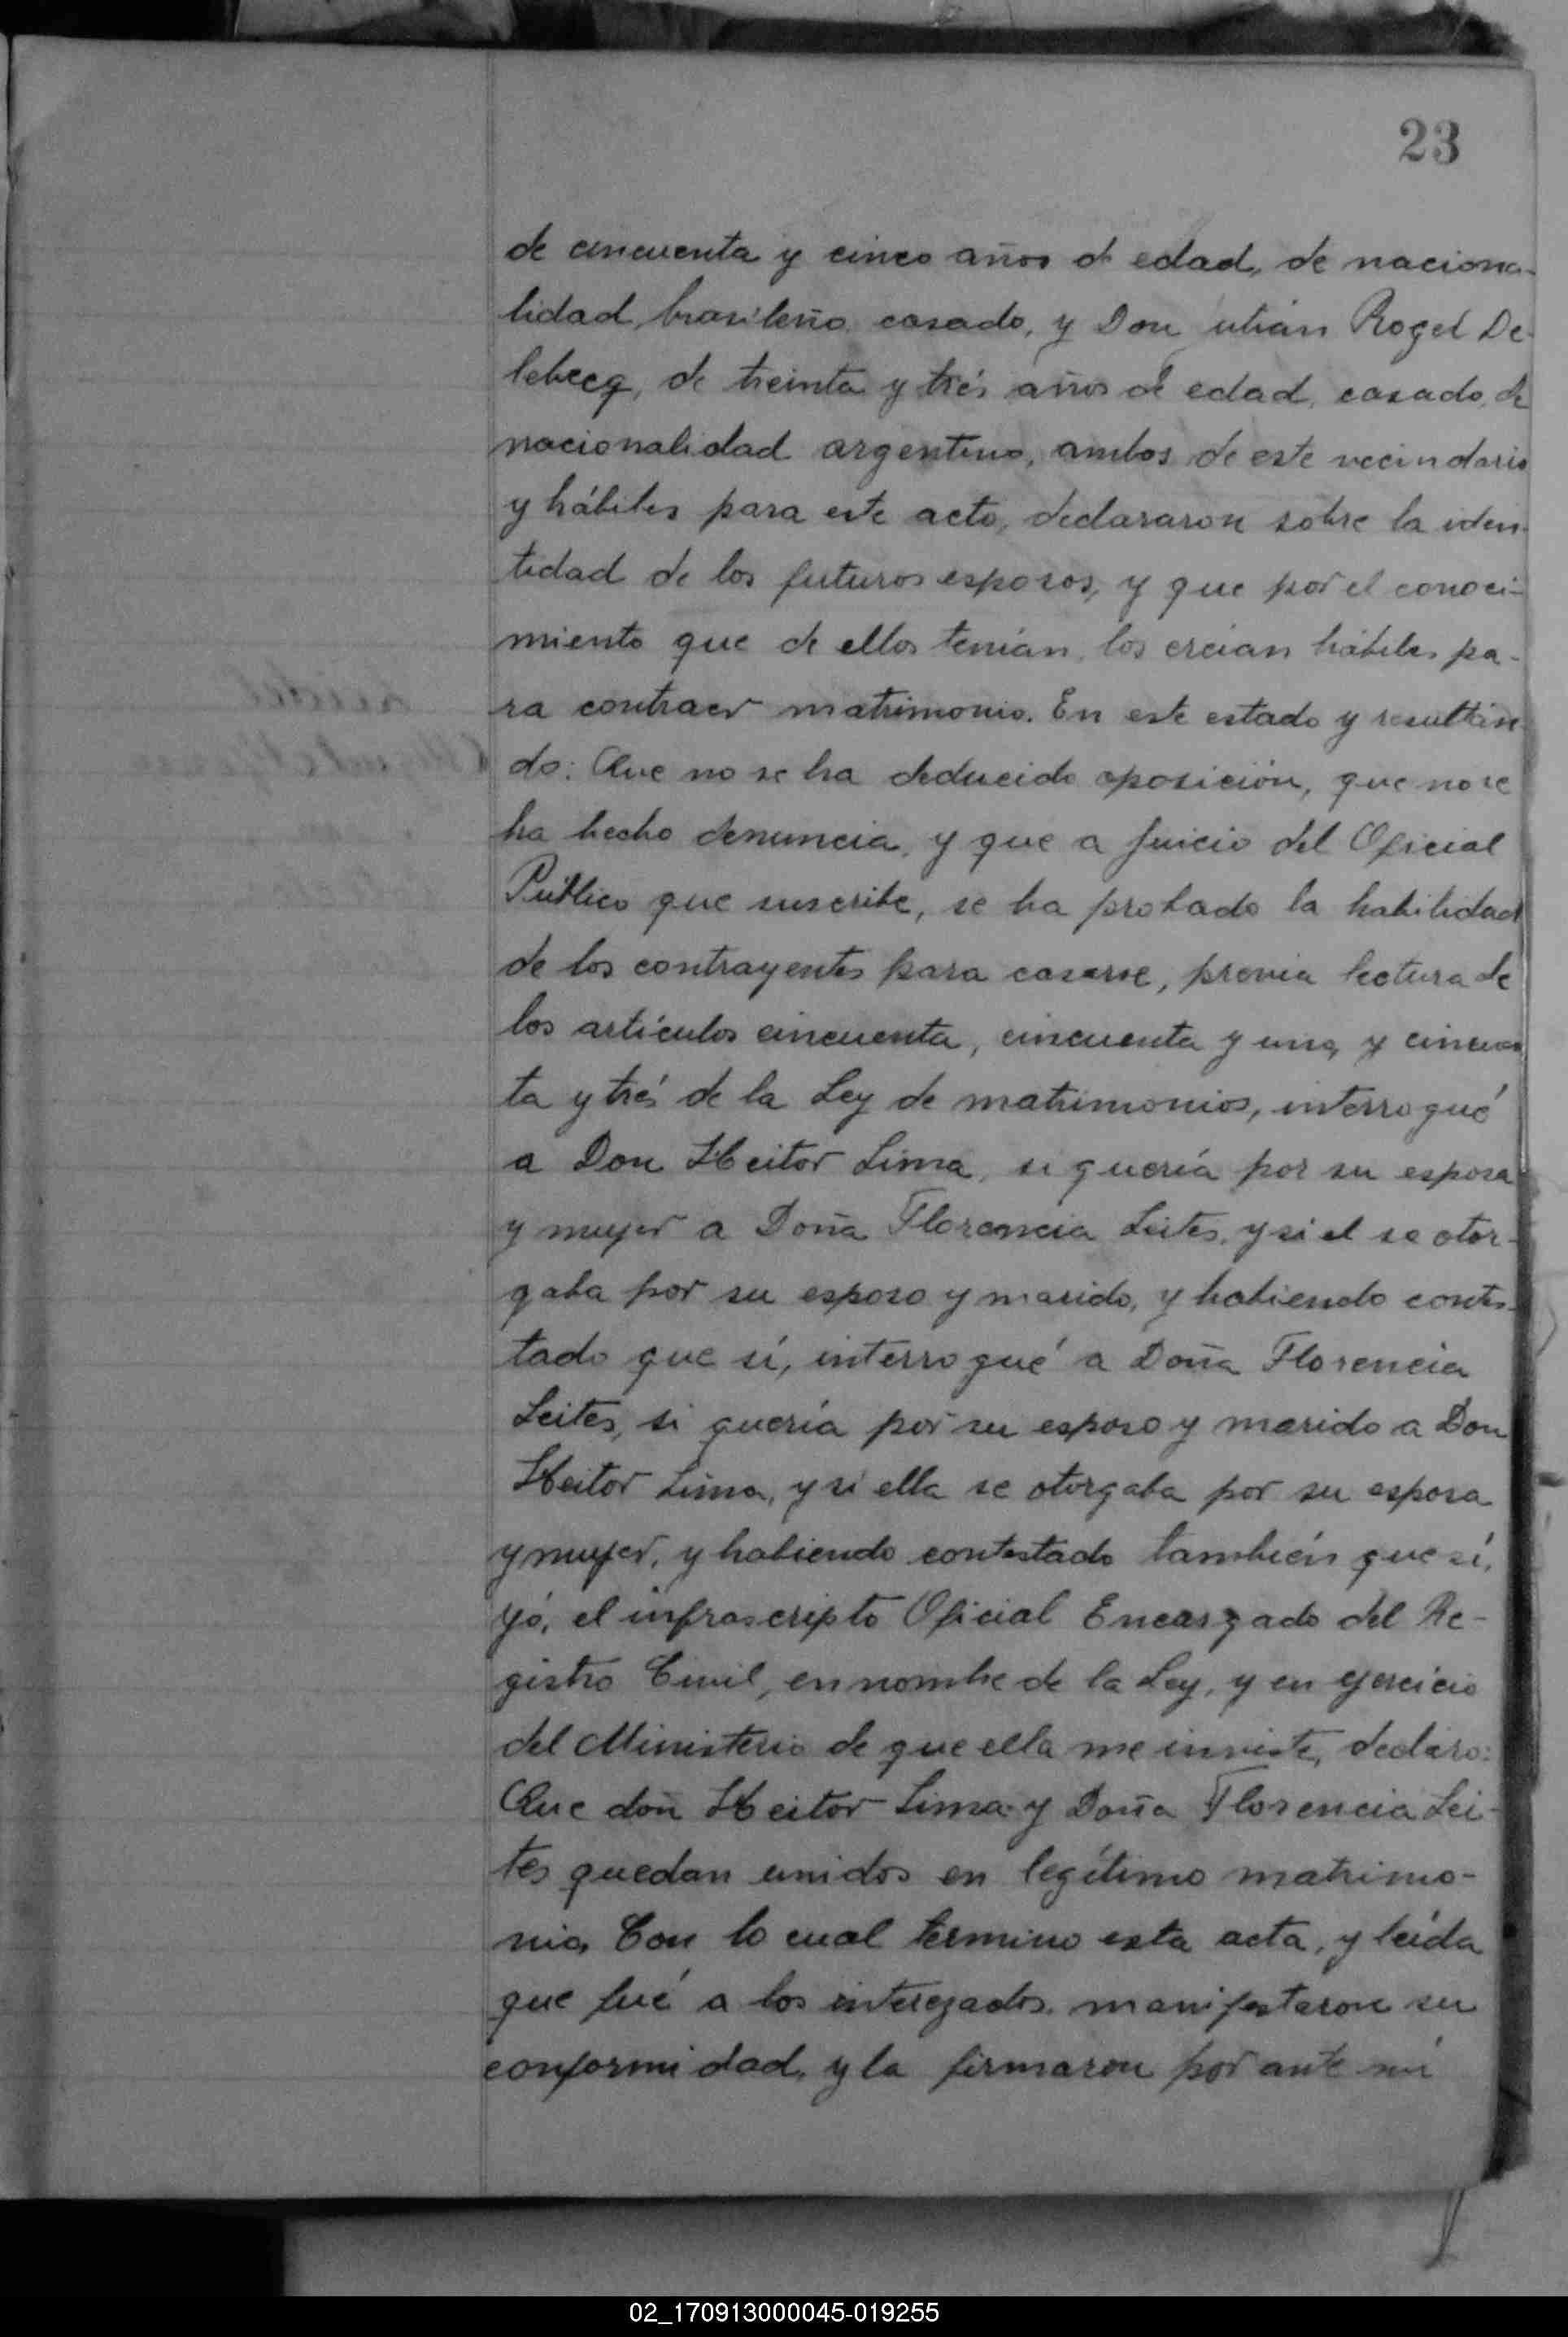 23
de cincuenta y cinco años de edad, de naciona-
lidad brasileño casado, y Don Julián Rogel De-
lebecq, de treinta y trés años de edad, casado, de
nacionalidad argentino, ambos de este vecindario
y hábiles para este acto, declararon sobre la iden-
tidad de los futuros esposos, y que por el conoci-
miento que de ellos tenían, los creían hábiles pa-
ra contraer matrimonio. En este estado y resultan-
do: Que no se ha deducido oposición, que no se
ha hecho denuncia, y que a juicio del Oficial
Público que suscribe, se ha probado la habilidad
de los contrayentes para casarse, previa lectura de
los artículos cincuenta, cincuenta y uno, y cincuen
ta y trés de la Ley de matrimonios, interrogué
a Don Heitor Lima, si quería por su esposa
y mujer a Doña Florencia Leites, y si el se otor-
gaba por su esposo y marido, y habiendo contes-
tado que sí, interrogué a Doña Florencia
Leites, si quería por su esposo y marido a Don
Heitor Lima, y si ella se otorgaba por su esposa
y mujer, y habiendo contestado también que sí,
yó, el infrascripto Oficial Encargado del Re-
gistro Civil, en nombre de la Ley, y en ejercicio
del Ministerio de que ella me inviste, declaro:
Que don Heitor Lima y Doña Florencia Lei-
tes quedan unidos en legítimo matrimo-
nio, Con lo cual termino esta acta, y leída
que fué a los interezados, manifestaron su
conformidad, y la firmaron por ante mí
02_170913000045-019255